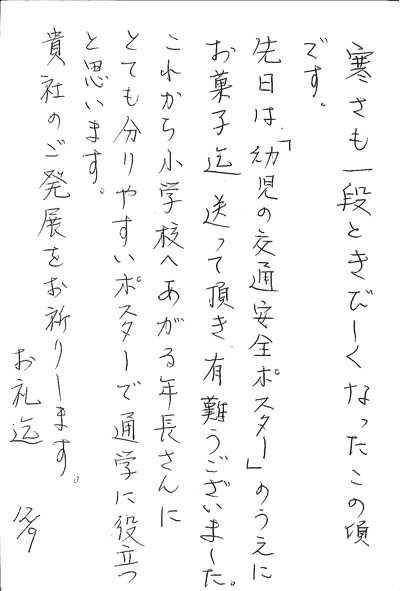 寒さも一段ときびしくなったこの項
です。
先日は、「幼児の交通安全ポスター」のうえに
お菓子迄送って頂き有難うございました。
これから小学校へあがる年長さんに
とても分りやすいポスターで通学に役立つ
と思います。
貴社のご発展をお祈りします。
お礼迄
12/9